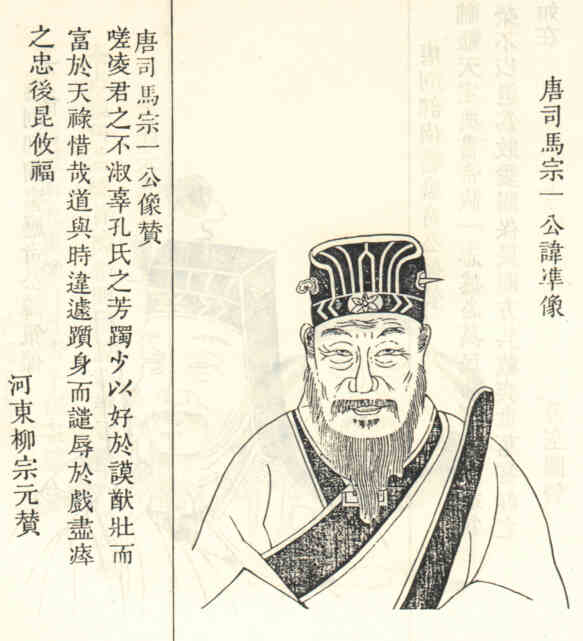 唐司馬宗一公諱準像
唐司馬宗一公像贊
嗟凌君之不淑辜孔氏之芳躅少以好於謨猷壯而
富於天祿惜哉道與時違遽躓身而譴辱於戲盡瘁
之忠後昆攸福
河東柳宗元贊